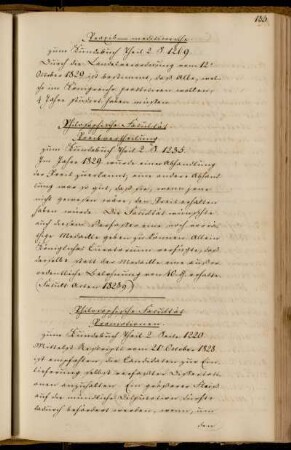 Praxis medica
zum Kundebuch Theil 2 S 1219.
Durch die Landesverordnung vom 12ten
October 1829 ist bestimmt, daß Alle, wel-
che im Königreiche practisiren wollen,
4 Jahre studiert haben müssen.
Philosophische Facultät
Preisvertheilung
zum Kundebuch Theil 2 S 1235.
Im Jahre 1829 wurde einer Abhandlung
der Preis zuerkannt, eine andere Abhand-
lung war so gut, daß sie, wenn jene
nicht gewesen wäre, den Preis erhalten
haben würde. Die Facultät wünschte
auf diesem Verfasser eine
Medaille geben zu können. Allein
Königliches Curatorium verfügte, daß
derselbe statt der Medaille eine außer-
ordentliche Belohnung von erhalte
(Facult. Acten 1829)
Philosophische Facultät
Promotionen
zum Kundebuch Theil 2 Seite 1220
Mittelst Rescripts vom 25 October 1828
ist empfohlen, die Candidaten zur Ein-
lieferung selbst verfaßter Dissertati-
onen anzuhalten. Ein größerer Fleiß
auf die mündliche Disputation dürfte
dadurch befördert werden, wenn, um
den